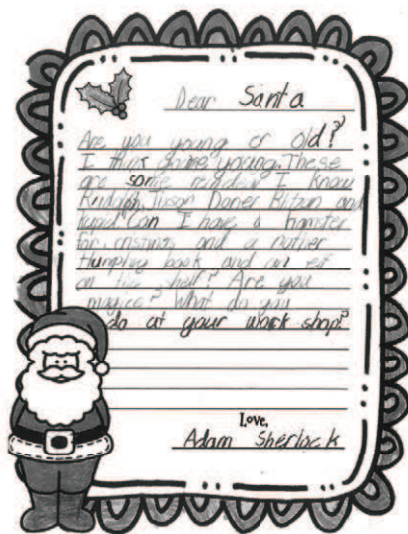 Dear Santa
Are you young or old?
I think your young. These
are some reindear I know
Rudolph, Doner Blitzen and
Can I have a hamster
for and a nuther
Humpfrey book and an elf
on the shelf? Are you
magice? What do you
do at your work shop?
Love,
Adam Sherlock